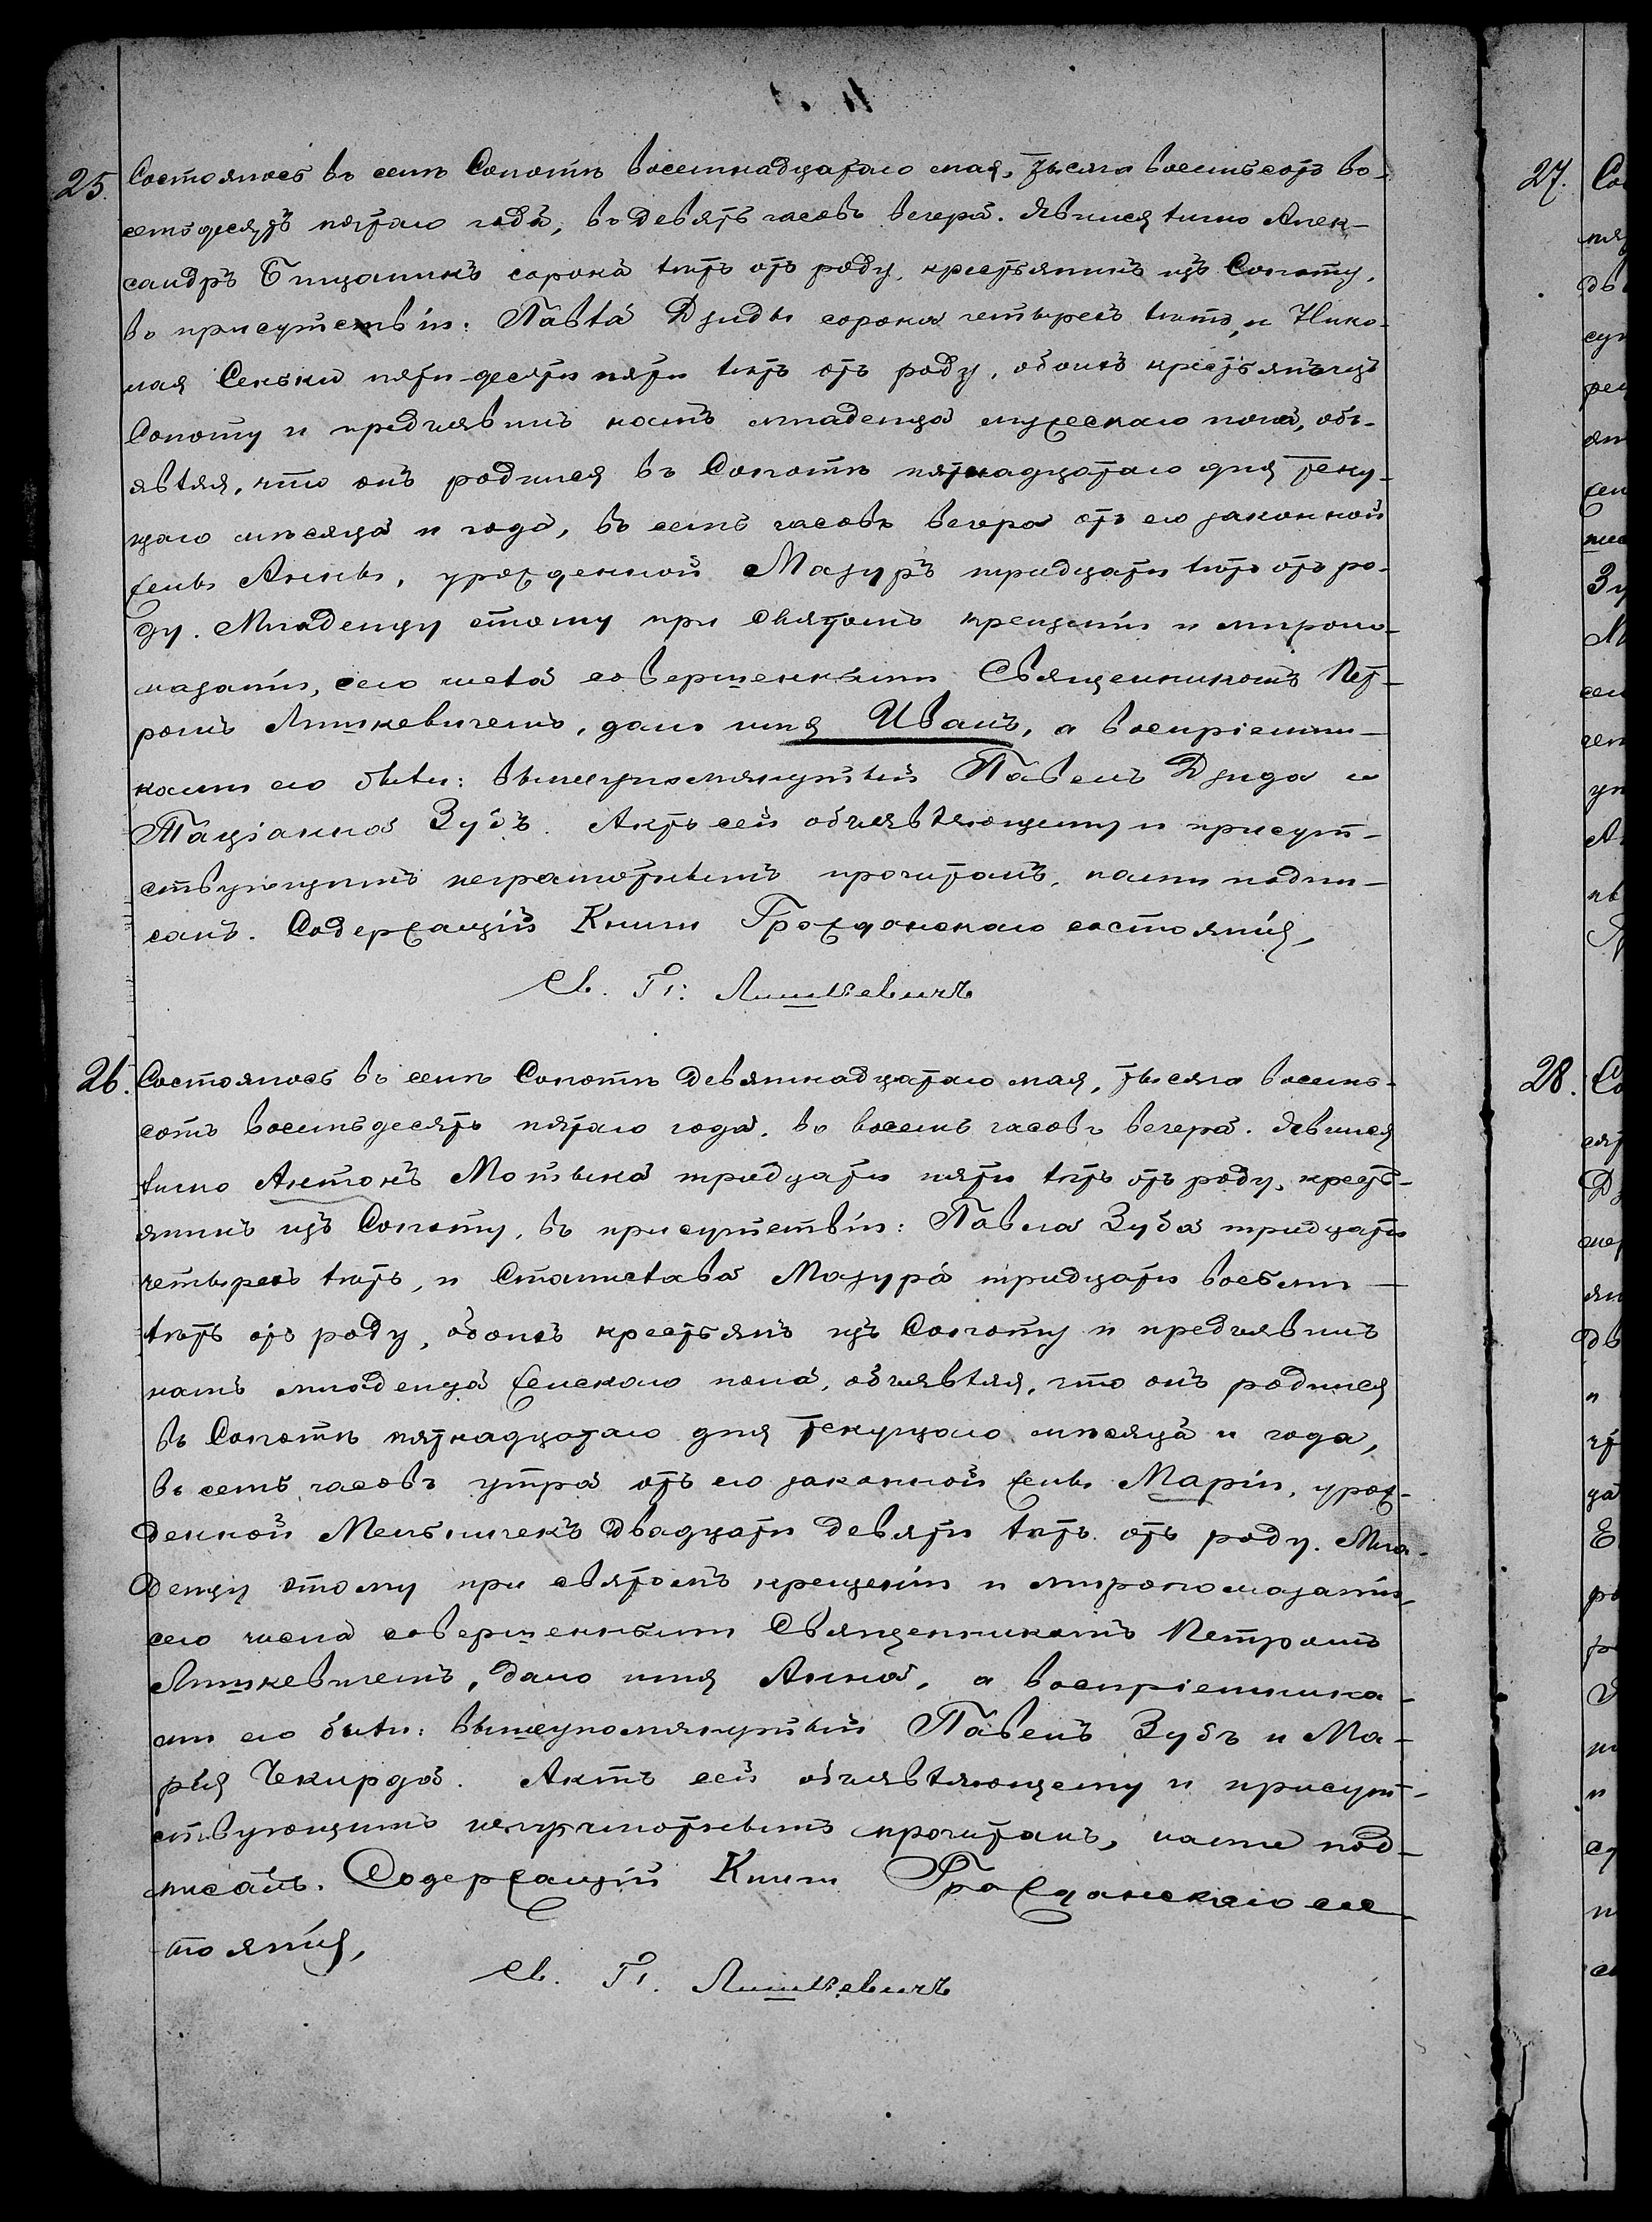 25. Состоялось въ селѣ Сопотѣ восемнадцатаго мая, тысяча восемьсотъ во-
семьдесятъ пятаго года, въ девять часовъ вечера. Явился лично Алек-
сандръ Бицанинъ сорока лѣтъ отъ роду, крестьянинъ изъ Сопоту,
въ присутствіи: Павла Дзиды сорока четырехъ лѣтъ, и Нико-
лая Сеньки пятидесяти пяти лѣтъ отъ роду, обоихъ крестьянъ изъ
Сопоту и предъявилъ намъ младенца мужескаго пола, объ-
являя, что онъ родился въ Сопотѣ пятнадцатаго дня теку-
щаго мѣсяца и года, въ семь часовъ вечера отъ его законной
жены Анны, урожденной Мазуръ тридцати лѣтъ отъ ро-
ду. Младенцу этому при святомъ крещеніи и миропо-
мазаніи, сего числа совершенными Священникомъ Пет-
ромъ Лишкевичемъ, дано имя Иванъ, а воспріемни-
ками его были: вышеупомянутый Павелъ Дзида и
Таціанна Зубъ. Актъ сей объявляющему и присут-
ствующимъ неграмотнымъ прочитанъ, нами подпи-
санъ. Содержащій Книги Гражданскаго состоянія,
Св. П: Лишкевичъ
26. Состоялось въ селѣ Сопотѣ девятнадцатаго мая, тысяча восемь-
сотъ восемьдесятъ пятаго года, въ восемь часовъ вечера. Явился
лично Антонъ Мотыка тридцати пяти лѣтъ отъ роду, кресть-
янинъ изъ Сопоту, въ присутствіи: Павла Зуба тридцати
четырехъ лѣтъ, и Станислава Мазура тридцати восьми
лѣтъ отъ роду, обоихъ крестьянъ изъ Сопоту и предъявилъ
намъ младенца женскаго пола, объявляя, что онъ родился
въ Сопотѣ пятнадцатаго дня текущаго мѣсяца и года,
въ семь часовъ утра отъ его законной жены Маріи, урож-
денной Мельничекъ двадцати девяти лѣтъ отъ роду. Мла-
денцу этому при святомъ крещеніи и миропомазаніи,
сего числа совершенными Священникомъ Петромъ
Лишкевичемъ, дано имя Анна, а воспріемника-
ми его были: вышеупомянутый Павелъ Зубъ и Ма-
рія Чекирда. Актъ сей объявляющему и присут-
ствующимъ неграмотнымъ прочитанъ, нами под-
писанъ. Содержащій Книги Гражданскаго сос-
тоянія,
Св. П. Лишкевичъ
27.
28.